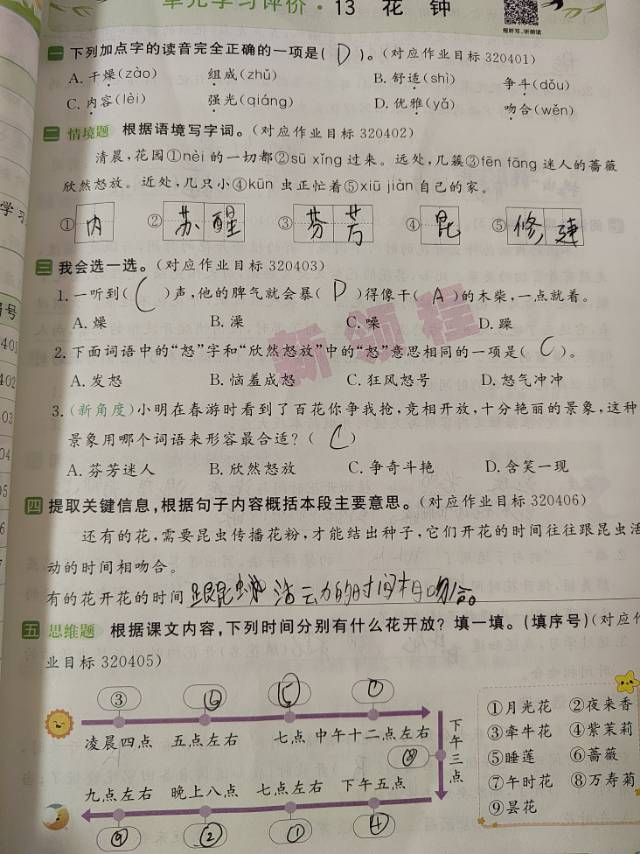 单元学习评价·13 花 钟
一 下列加点字的读音完全正确的一项是( D )。(对应作业目标 320401)
A. 干燥(zào) 组成(zhǔ) B. 舒适(shì) 争斗(dǒu)
C. 内容(lèi) 强光(qiáng) D. 优雅(yǎ) 吻合(wěn)
二 情境题 根据语境写字词。(对应作业目标 320402)
清晨,花园①nèi 的一切都②sū xǐng 过来。远处,几簇③fēn fāng 迷人的蔷薇
欣然怒放。近处,几只小④kūn 虫正忙着⑤xiū jiàn 自己的家。
① 内 ② 苏醒 ③ 芬芳 ④ 昆 ⑤ 修建
三 我会选一选。(对应作业目标 320403)
1. 一听到( C )声,他的脾气就会暴( D )得像干( A )的木柴,一点就着。
A. 燥 B. 澡 C. 噪 D. 躁
2. 下面词语中的“怒”字和“欣然怒放”中的“怒”意思相同的一项是( C )。
A. 发怒 B. 恼羞成怒 C. 狂风怒号 D. 怒气冲冲
3. (新角度)小明在春游时看到了百花你争我抢,竞相开放,十分艳丽的景象,这种
景象用哪个词语来形容最合适?( C )
A. 芬芳迷人 B. 欣然怒放 C. 争奇斗艳 D. 含笑一现
四 提取关键信息,根据句子内容概括本段主要意思。(对应作业目标 320406)
还有的花,需要昆虫传播花粉,才能结出种子,它们开花的时间往往跟昆虫活
动的时间相吻合。
有的花开花的时间跟昆虫活动的时间相吻合。
五 思维题 根据课文内容,下列时间分别有什么花开放?填一填。(填序号)(对应作
业目标 320405)
③ ⑥ ⑤ ⑦
凌晨四点 五点左右 七点 中午十二点左右
⑧ 下午三点
九点左右 晚上八点 七点左右 下午五点
⑨ ② ① ④
①月光花 ②夜来香
③牵牛花 ④紫茉莉
⑤睡莲 ⑥蔷薇
⑦午时花 ⑧万寿菊
⑨昙花
新领程
学习
号
401
402
03
04
05